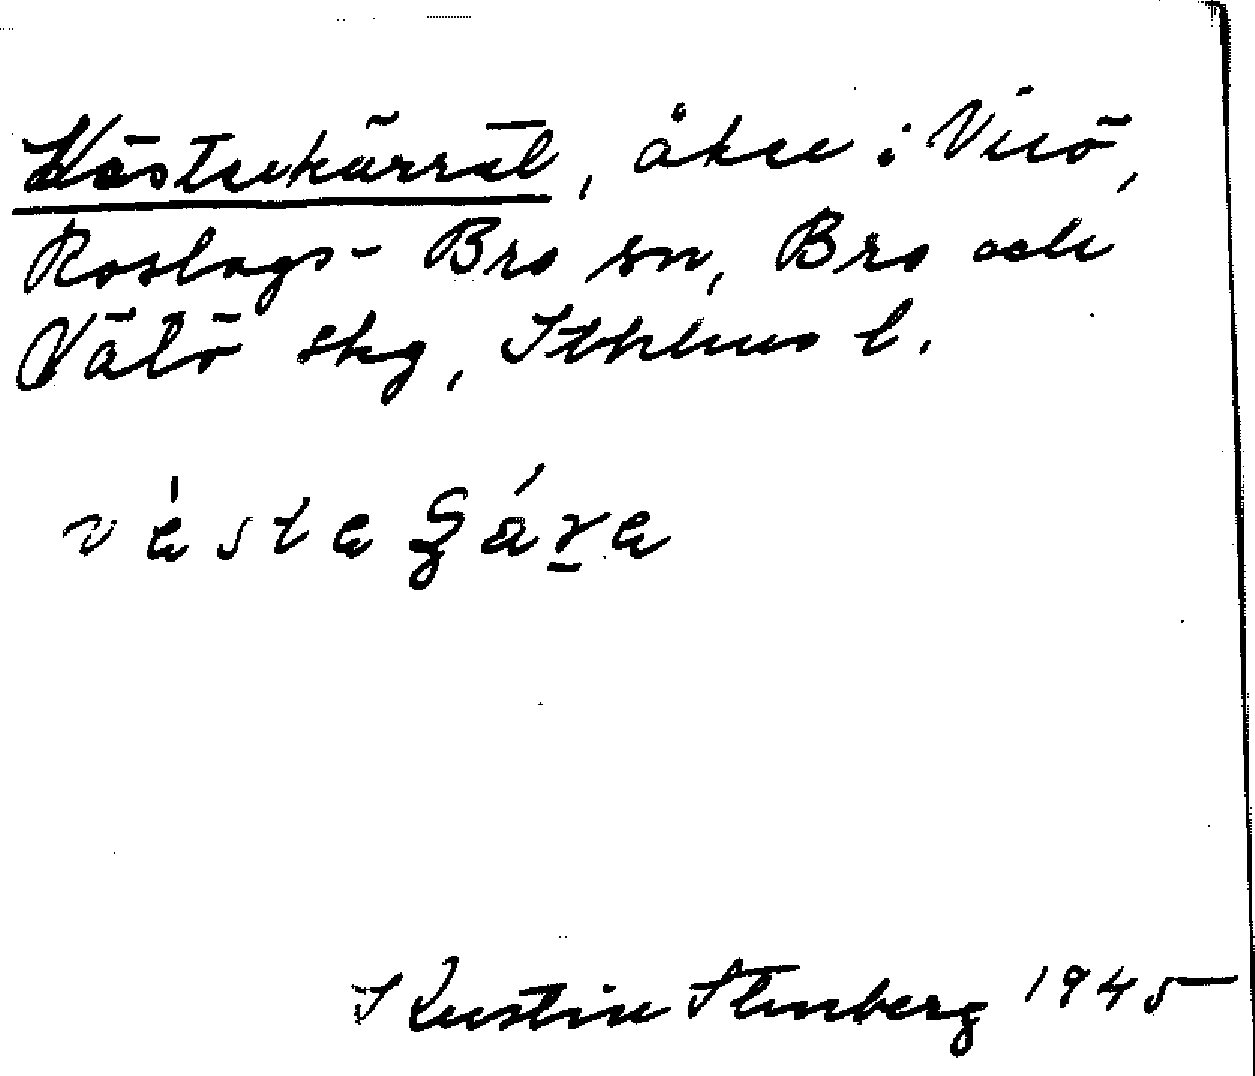 Västerkärret, åker i Virö,
Roslags-Bro sn, Bro och
Vätö skg, Sthlms l.
Kerstin Stenberg 1945